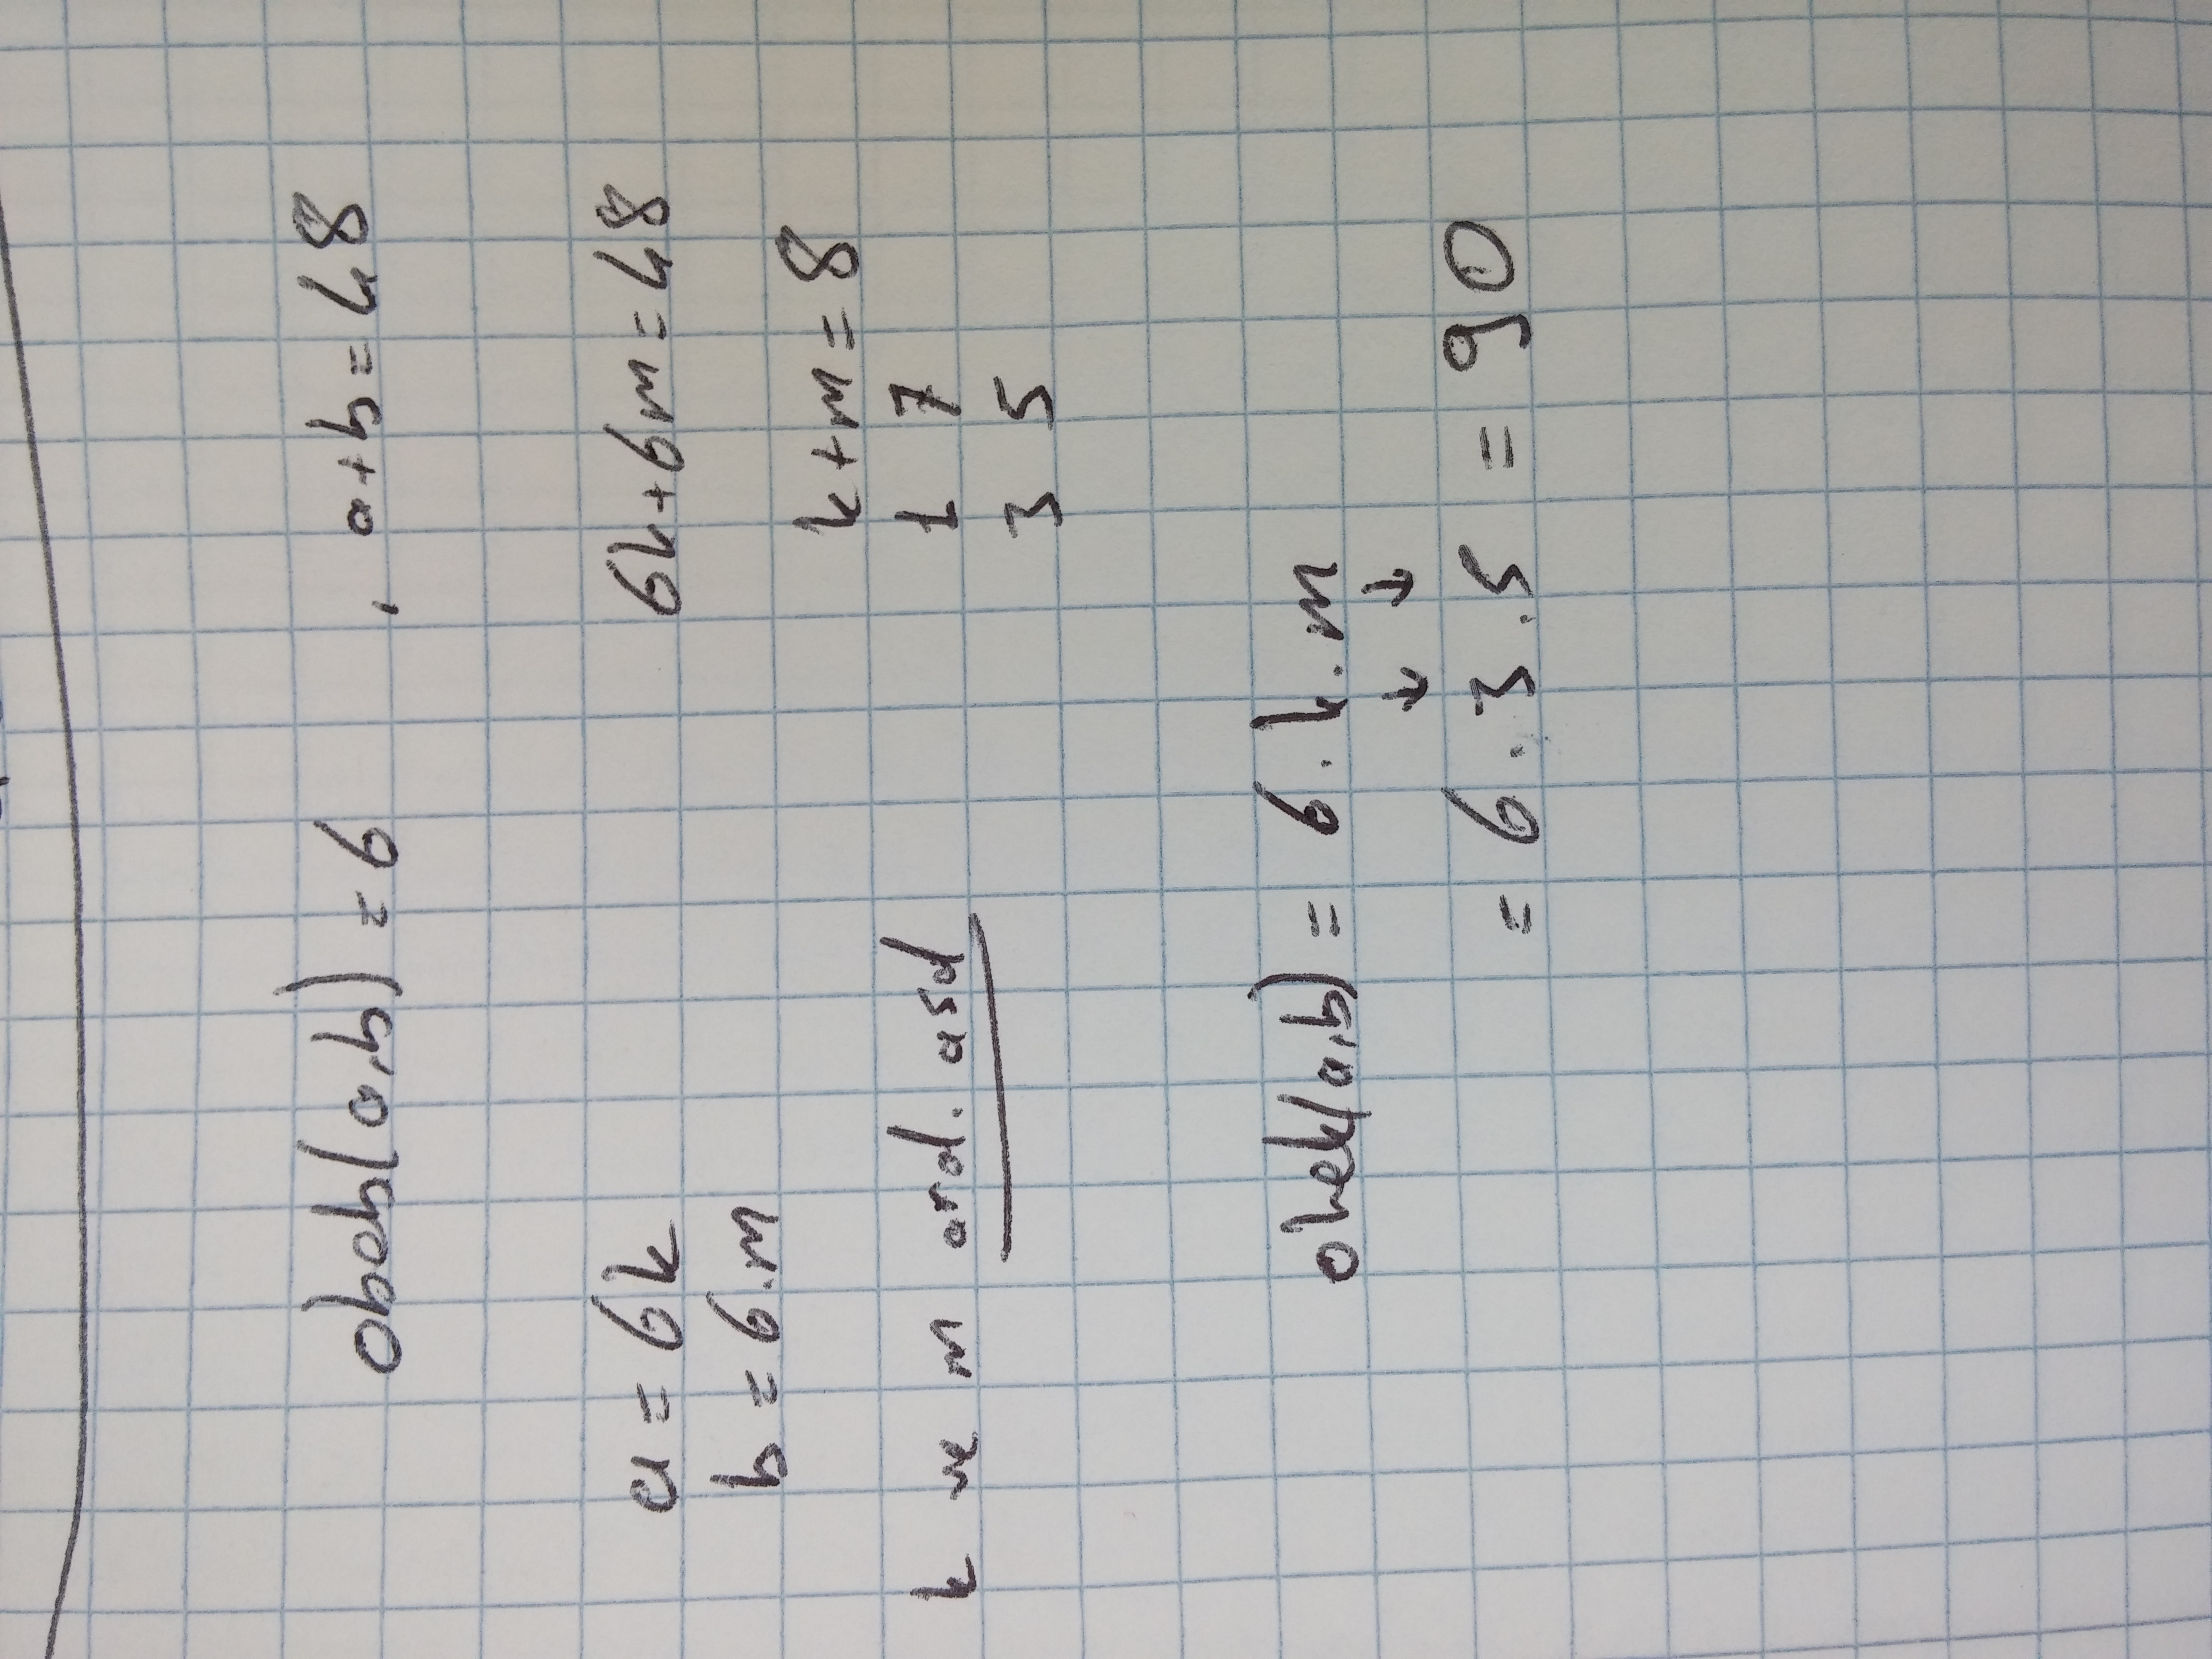 obeb(a,b) = 6 , a+b=48
a = 6k 6k+6m=48
b = 6.m k+m=8
k ve m aral. asal 1 7
3 5
okek(a,b) = 6.k.m
↓ ↓
= 6.3.5 = 90